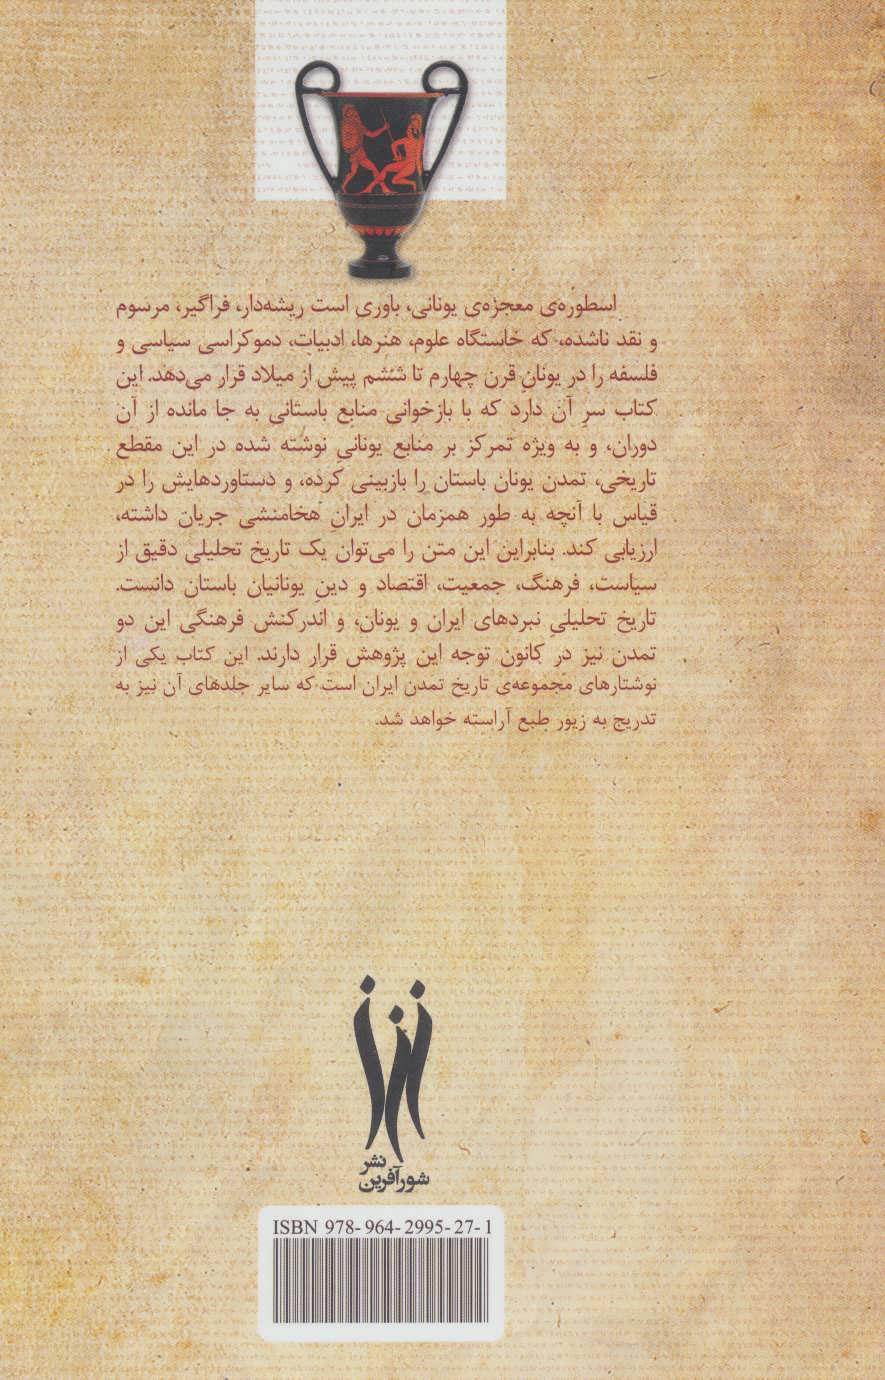 اسطوره‌ی معجزه‌ی یونانی، باوری است ریشه‌دار، فراگیر، مرسوم
و نقد ناشده، که خاستگاه علوم، هنرها، ادبیات، دموکراسی سیاسی و
فلسفه را در یونانِ قرن چهارم تا ششم پیش از میلاد قرار می‌دهد. این
کتاب سرِ آن دارد که با بازخوانی منابع باستانی به جا مانده از آن
دوران، و به ویژه تمرکز بر منابع یونانیِ نوشته شده در این مقطع
تاریخی، تمدن یونان باستان را بازبینی کرده، و دستاوردهایش را در
قیاس با آنچه به طور همزمان در ایرانِ هخامنشی جریان داشته،
ارزیابی کند. بنابراین این متن را می‌توان یک تاریخ تحلیلی دقیق از
سیاست، فرهنگ، جمعیت، اقتصاد و دینِ یونانیان باستان دانست.
تاریخ تحلیلیِ نبردهای ایران و یونان، و اندرکنش فرهنگی این دو
تمدن نیز در کانون توجه این پژوهش قرار دارند. این کتاب یکی از
نوشتارهای مجموعه‌ی تاریخ تمدن ایران است که سایر جلدهای آن نیز به
تدریج به زیور طبع آراسته خواهد شد.
نشر
شورآفرین
ISBN 978-964-2995-27-1